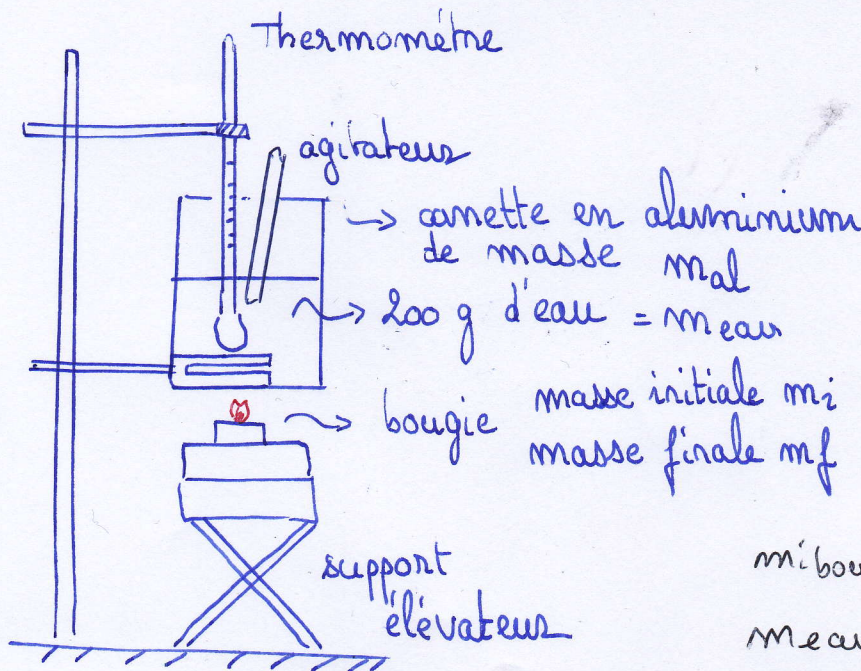 Thermomètre
agitateur
→ canette en aluminium
de masse mal
→ 200 g d'eau = meau
→ bougie masse initiale mi
masse finale mf
support
élévateur
mibou
meau